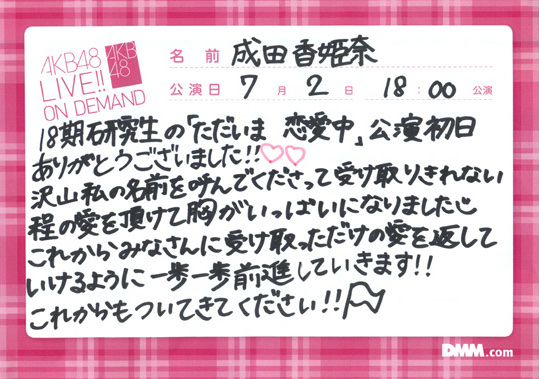 AKB48
LIVE!!
ON DEMAND
AKB
48
名 前 成田香姫奈
公演日 7 月 2 日 18:00 公演
18期研究生の「ただいま 恋愛中」公演初日
ありがとうございました!!♡♡
沢山私の名前を呼んでくださって受け取りきれない
程の愛を頂けて胸がいっぱいになりました
これからみなさんに受け取っただけの愛を返して
いけるように一歩一歩前進していきます!!
これからもついてきてください!!
DMM.com